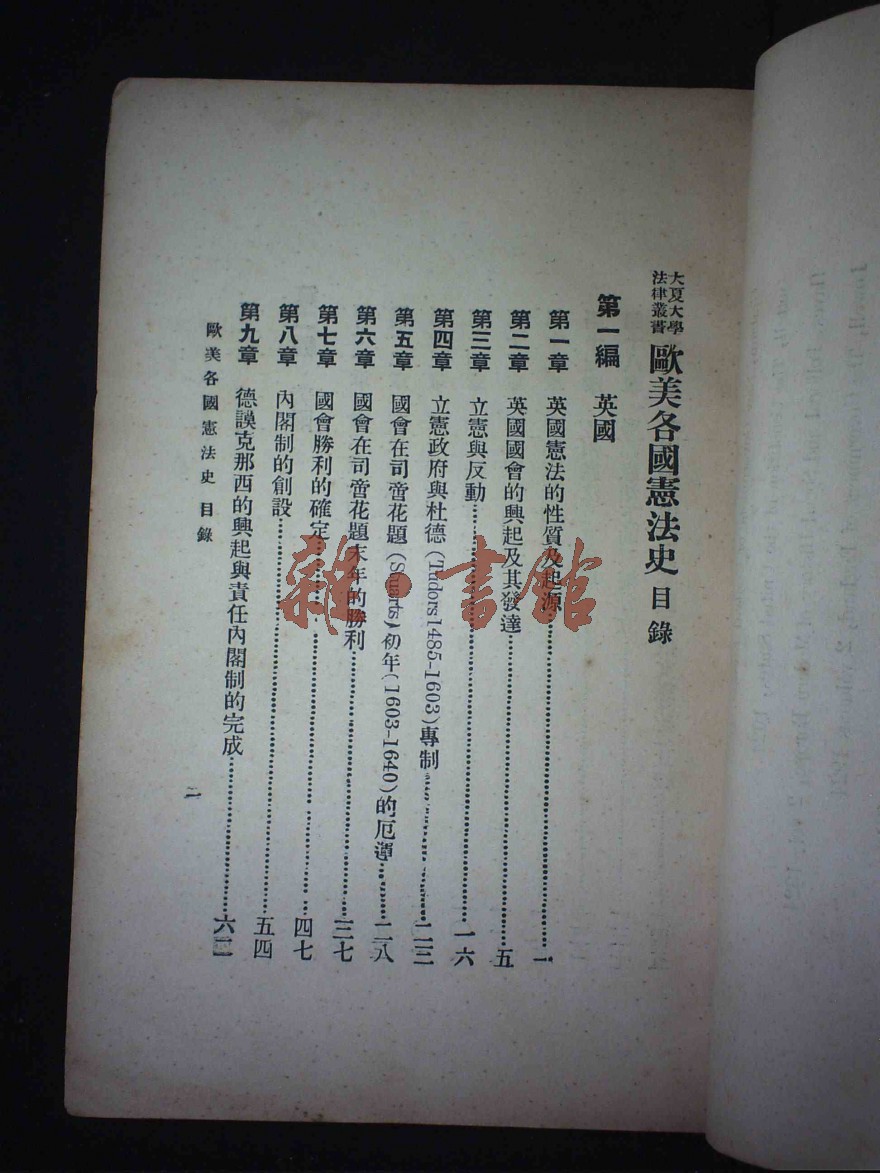 大夏大學
法律叢書
歐美各國憲法史 目錄
第一編 英國
第一章 英國憲法的性質及起源……一
第二章 英國國會的興起及其發達……五
第三章 立憲與反動……一六
第四章 立憲政府與杜德(Tudors1485-1603)專制……二三
第五章 國會在司啻花題(Stuarts)初年(1603-1640)的厄運……二八
第六章 國會在司啻花題末年的勝利……三七
第七章 國會勝利的確定……四七
第八章 內閣制的創設……五四
第九章 德謨克那西的興起與責任內閣制的完成……六二
歐美各國憲法史 目錄
二
雜·書館